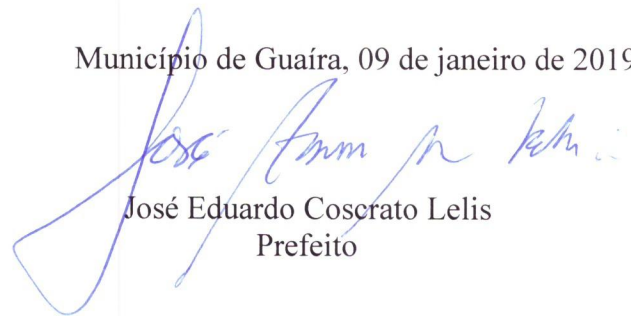 Município de Guaíra, 09 de janeiro de 2019
José
José Eduardo Coscrato Lelis
Prefeito